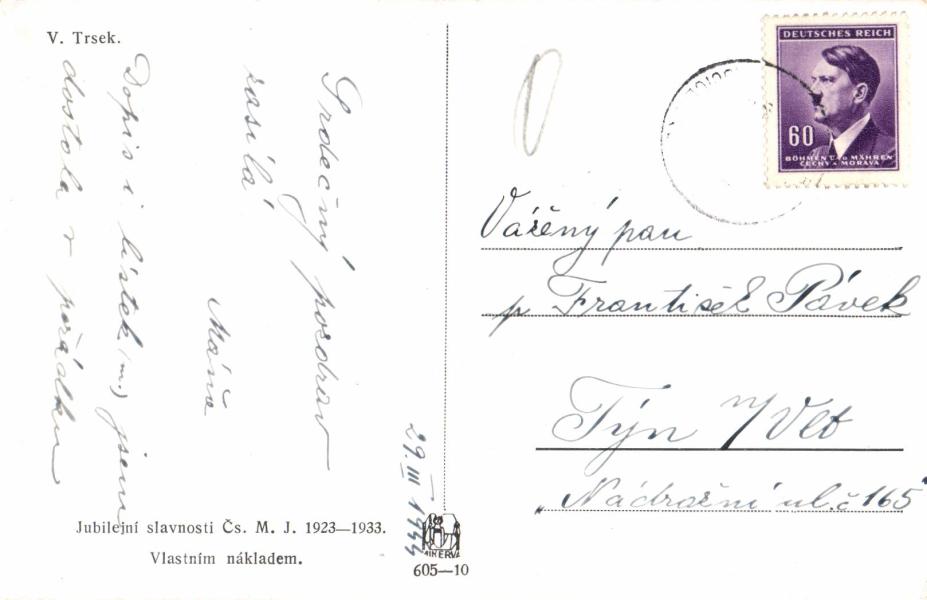 V. Trsek.
Srdečný pozdrav
zasílá
Máňa
Dopis i lístek (m.) jsem
dostala v pořádku
29. III 1944
DEUTSCHES REICH
60
BÖHMEN UND MÄHREN
ČECHY A MORAVA
Vážený pan
p František Pávek
Týn n/Vlt
Nádražní ul. č 165
Jubilejní slavnosti Čs. M. J. 1923—1933.
Vlastním nákladem.
MINERVA
605—10